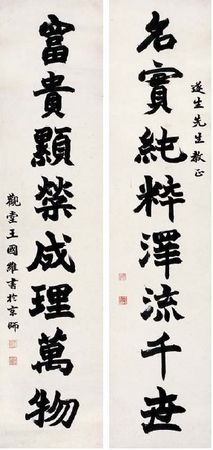 遂生先生教正
名實純粹澤流千世
富貴顯榮成理萬物
觀堂王國維書於京師